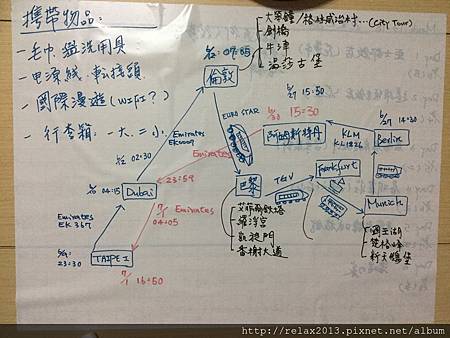 攜帶物品:
- 毛巾、盥洗用具
- 電源線、轉接頭
- 國際漫遊 (WIFI?)
- 行李箱:一大、二小
大笨鐘/格林威治村...(City Tour)
劍橋
牛津
溫莎古堡
07:05
倫敦
EURO STAR
6/27 15:50
6/30 15:30
阿姆斯特丹
KLM
KL1826
6/27 14:30
Berlin
Emirates
EK009
02:30
Emirates
23:59
04:15
Dubai
巴黎
TGV
Frankfurt
Munich
艾菲爾鐵塔
羅浮宮
凱旋門
香榭大道
國王湖
楚格峰
新天鵝堡
Emirates
EK 367
7/1 Emirates
04:05
23:30
TAIPEI
7/1 16:50
http://relax2013.pixnet.net/album